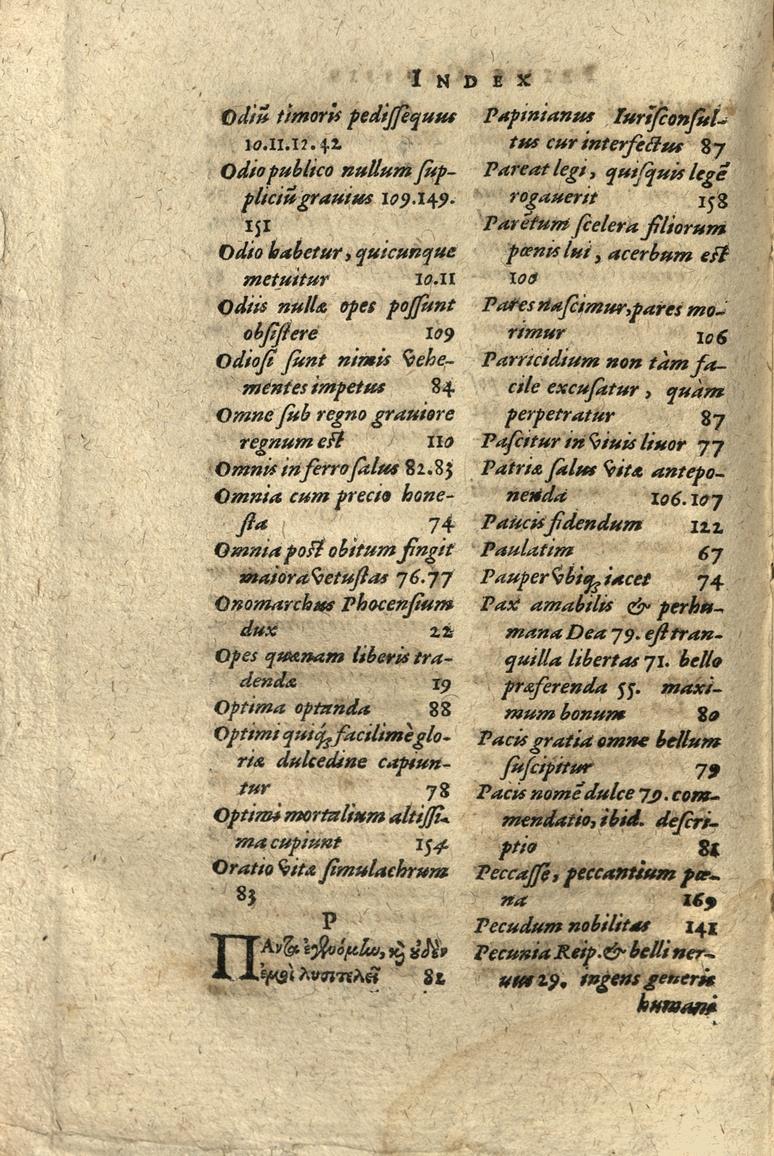 INDEX
Odiũ timoris pedissequus
10.11.12.42
Odio publico nullum sup-
pliciũ grauius 109.149.
151
Odio habetur, quicunque
metuitur 10.11
Odiis nullæ opes possunt
obsistere 109
Odiosi sunt nimis vehe-
mentes impetus 84
Omne sub regno grauiore
regnum est 110
Omnis in ferro salus 82.83
Omnia cum precio hone-
sta 74
Omnia post obitum fingit
maiora vetustas 76.77
Onomarchus Phocensium
dux 22
Opes quænam liberis tra-
dendæ 19
Optima optanda 88
Optimi quiq́; facilimè glo-
riæ dulcedine capiun-
tur 78
Optimi mortalium altissi-
ma cupiunt 154
Oratio vitæ simulachrum
83
P
Πάντα ἐλυόμην, κὶ ȣ̓δὲν
ἐμοὶ λυσιτελεῖ 82
Papinianus Iurisconsul-
tus cur interfectus 87
Pareat legi, quisquis legẽ
rogauerit 158
Parẽtum scelera filiorum
pœnis lui, acerbum est
100
Pares nascimur, pares mo-
rimur 106
Parricidium non tàm fa-
cile excusatur, quàm
perpetratur 87
Pascitur in viuis liuor 77
Patriæ salus vitæ antepo-
nenda 106.107
Paucis fidendum 122
Paulatim 67
Pauper vbiq; iacet 74
Pax amabilis & perhu-
mana Dea 79. est tran-
quilla libertas 71. bello
præferenda 55. maxi-
mum bonum 80
Pacis gratia omne bellum
suscipitur 79
Pacis nomẽ dulce 79. com-
mendatio, ibid. descri-
ptio 81
Peccasse, peccantium pœ-
na 169
Pecudum nobilitas 141
Pecunia Reip. & belli ner-
uus 29. ingens generis
humani